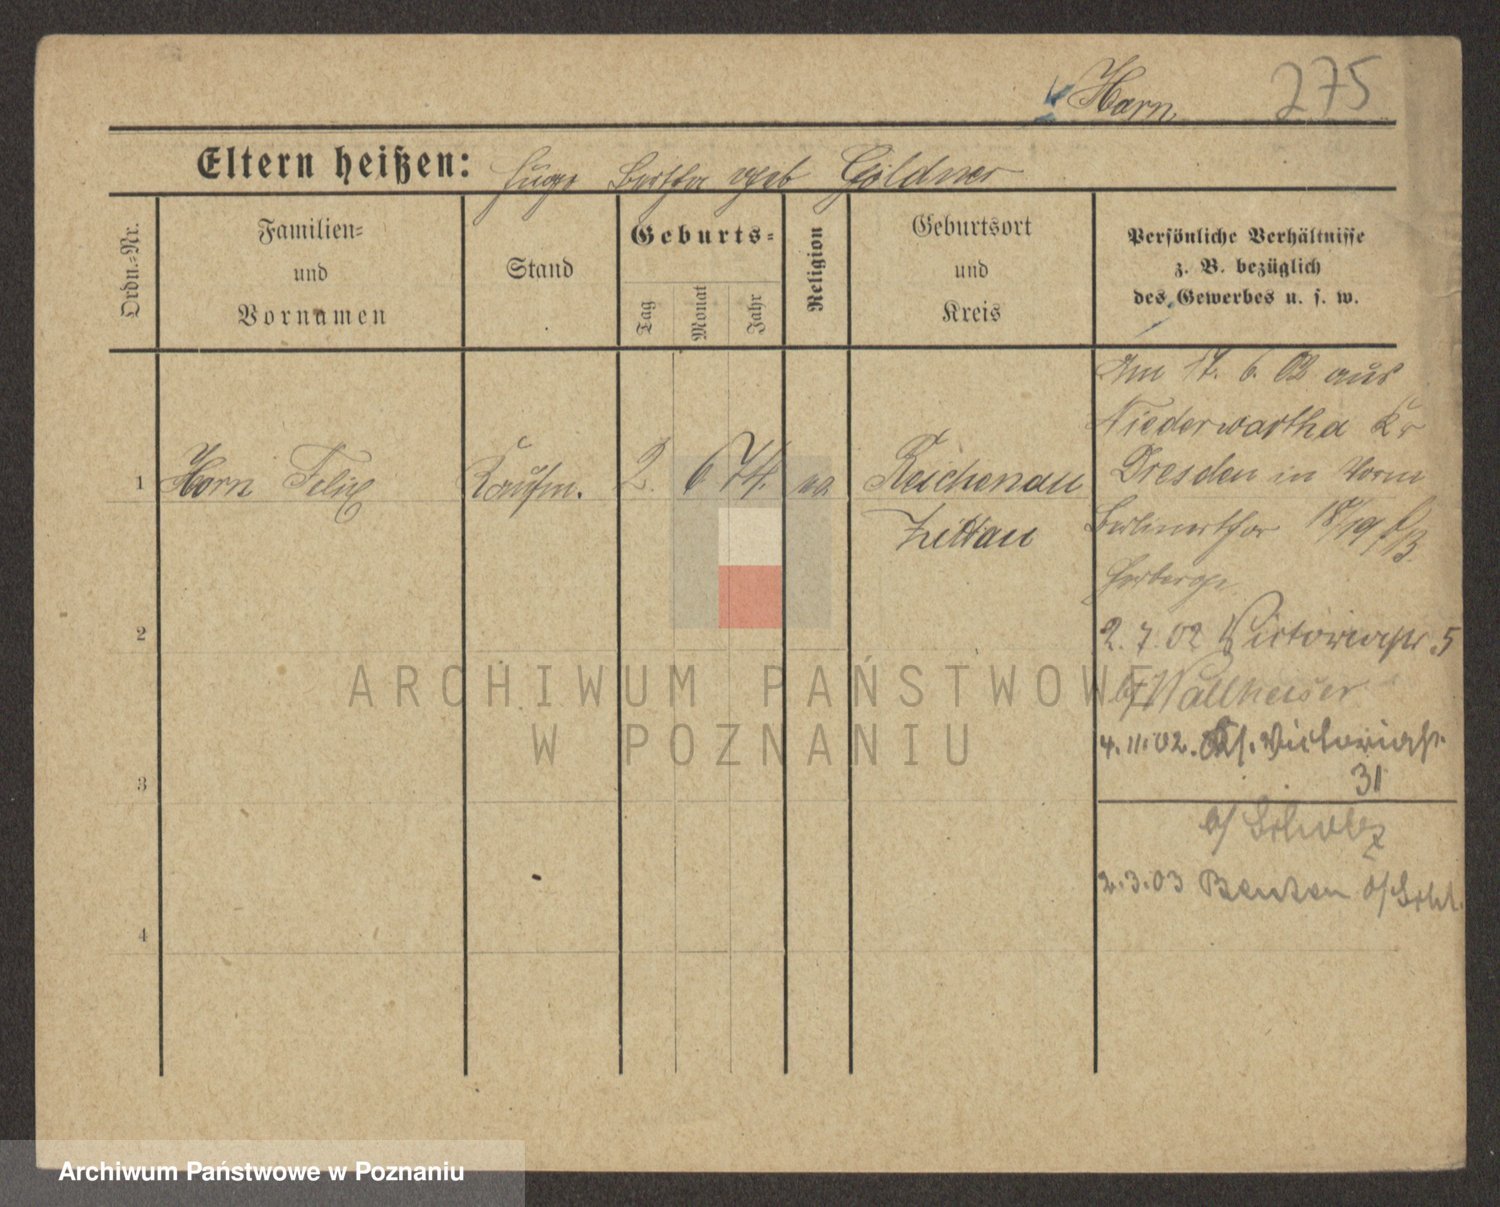 Horn.
275
Eltern heißen: Hugo Bertha geb Göldner
Ordn.-Nr.
Familien-
und
Vornamen
Stand
Geburts-
Tag
Monat
Jahr
Religion
Geburtsort
und
Kreis
Persönliche Verhältnisse
z. B. bezüglich
des Gewerbes u. s. w.
1
Horn Felix
Kaufm.
2. 6 74.
ev.
Reichenau
Zittau
Am 17. 6. 02 aus
Niederwartha Kr
Dresden in Vorm
Berlinerthor 18/19
Herberge
2. 7. 02 Victoriastr. 5
b/ Wallheiser
4. 11. 02. Victoriastr.
31
b/ Scholz
2. 3. 03 Beuthen O/Schl.
2
3
4
ARCHIWUM PAŃSTWOWE
W POZNANIU
Archiwum Państwowe w Poznaniu